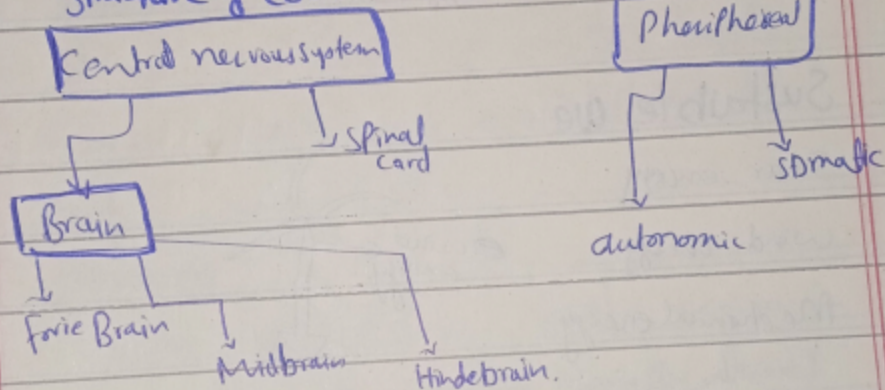 Central nervous system
Pheripheral
Spinal
card
Somatic
Brain
autonomic
Forie Brain
Midbrain
Hindebrain.